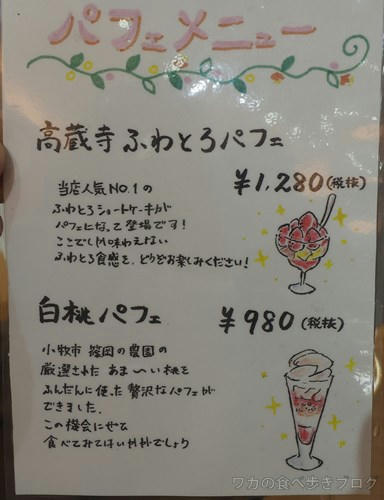 パフェメニュー
高蔵寺ふわとろパフェ
¥1,280(税抜)
当店人気NO.1の
ふわとろショートケーキが
パフェになって登場です!
ここでしか味わえない
ふわとろ食感を、どうぞお楽しみください!
白桃パフェ
¥980(税抜)
小牧市 篠岡の農園の
厳選された あま〜い桃を
ふんだんに使った贅沢なパフェが
できました。
この機会にぜひ
食べてみてはいかがでしょう
ワカの食べ歩きブログ